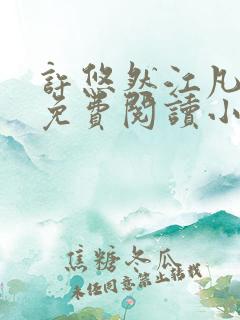 許悠然江凡
免費閱讀小
焦糖冬瓜
未經同意禁止轉載